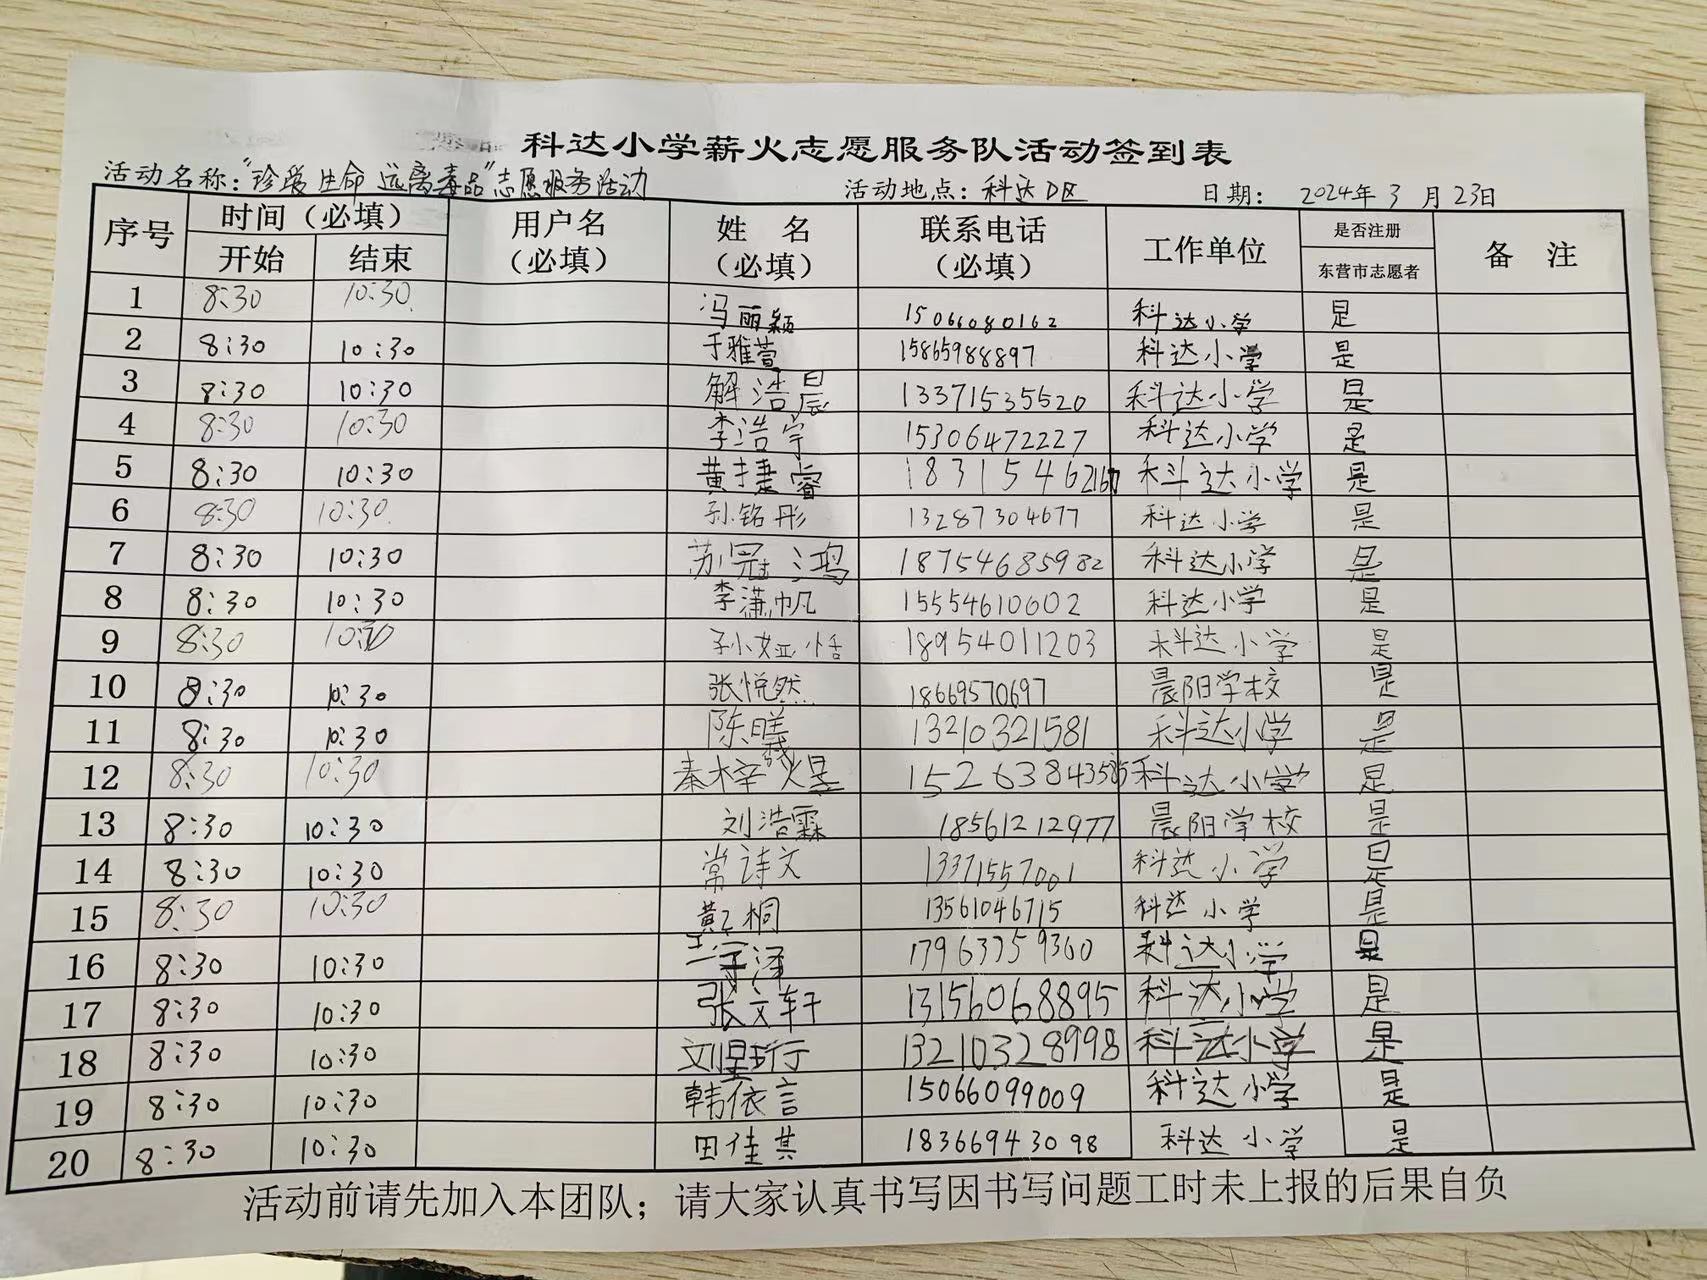 科达小学薪火志愿服务队活动签到表
活动名称：“珍爱生命 远离毒品”志愿服务活动 活动地点：科达D区 日期： 2024年 3 月 23日
序号 时间（必填） 用户名（必填） 姓 名（必填） 联系电话（必填） 工作单位 是否注册 东营市志愿者 备 注
开始 结束
1 8:30 10:30 冯丽颖 15066080162 科达小学 是
2 8:30 10:30 于雅萱 15865988897 科达小学 是
3 8:30 10:30 解浩晨 13371535520 科达小学 是
4 8:30 10:30 李浩宇 15306472227 科达小学 是
5 8:30 10:30 黄捷睿 科达小学 是
6 8:30 10:30 孙铭彤 13287304677 科达小学 是
7 8:30 10:30 苏冠鸿 18754685982 科达小学 是
8 8:30 10:30 李潇帆 15554610602 科达小学 是
9 8:30 10:30 孙小娅恬 18954011203 科达小学 是
10 8:30 10:30 张悦然 18669570697 晨阳学校 是
11 8:30 10:30 陈曦 13210321581 科达小学 是
12 8:30 10:30 秦梓煜 科达小学 是
13 8:30 10:30 刘浩霖 18561212977 晨阳学校 是
14 8:30 10:30 常诗文 13371557001 科达小学 是
15 8:30 10:30 13561046715 科达小学 是
16 8:30 10:30 17963759360 科达小学 是
17 8:30 10:30 张文轩 13156068895 科达小学 是
18 8:30 10:30 刘星珩 13210328998 科达小学 是
19 8:30 10:30 韩依言 15066099009 科达小学 是
20 8:30 10:30 田佳其 18366943098 科达小学 是
活动前请先加入本团队；请大家认真书写因书写问题工时未上报的后果自负